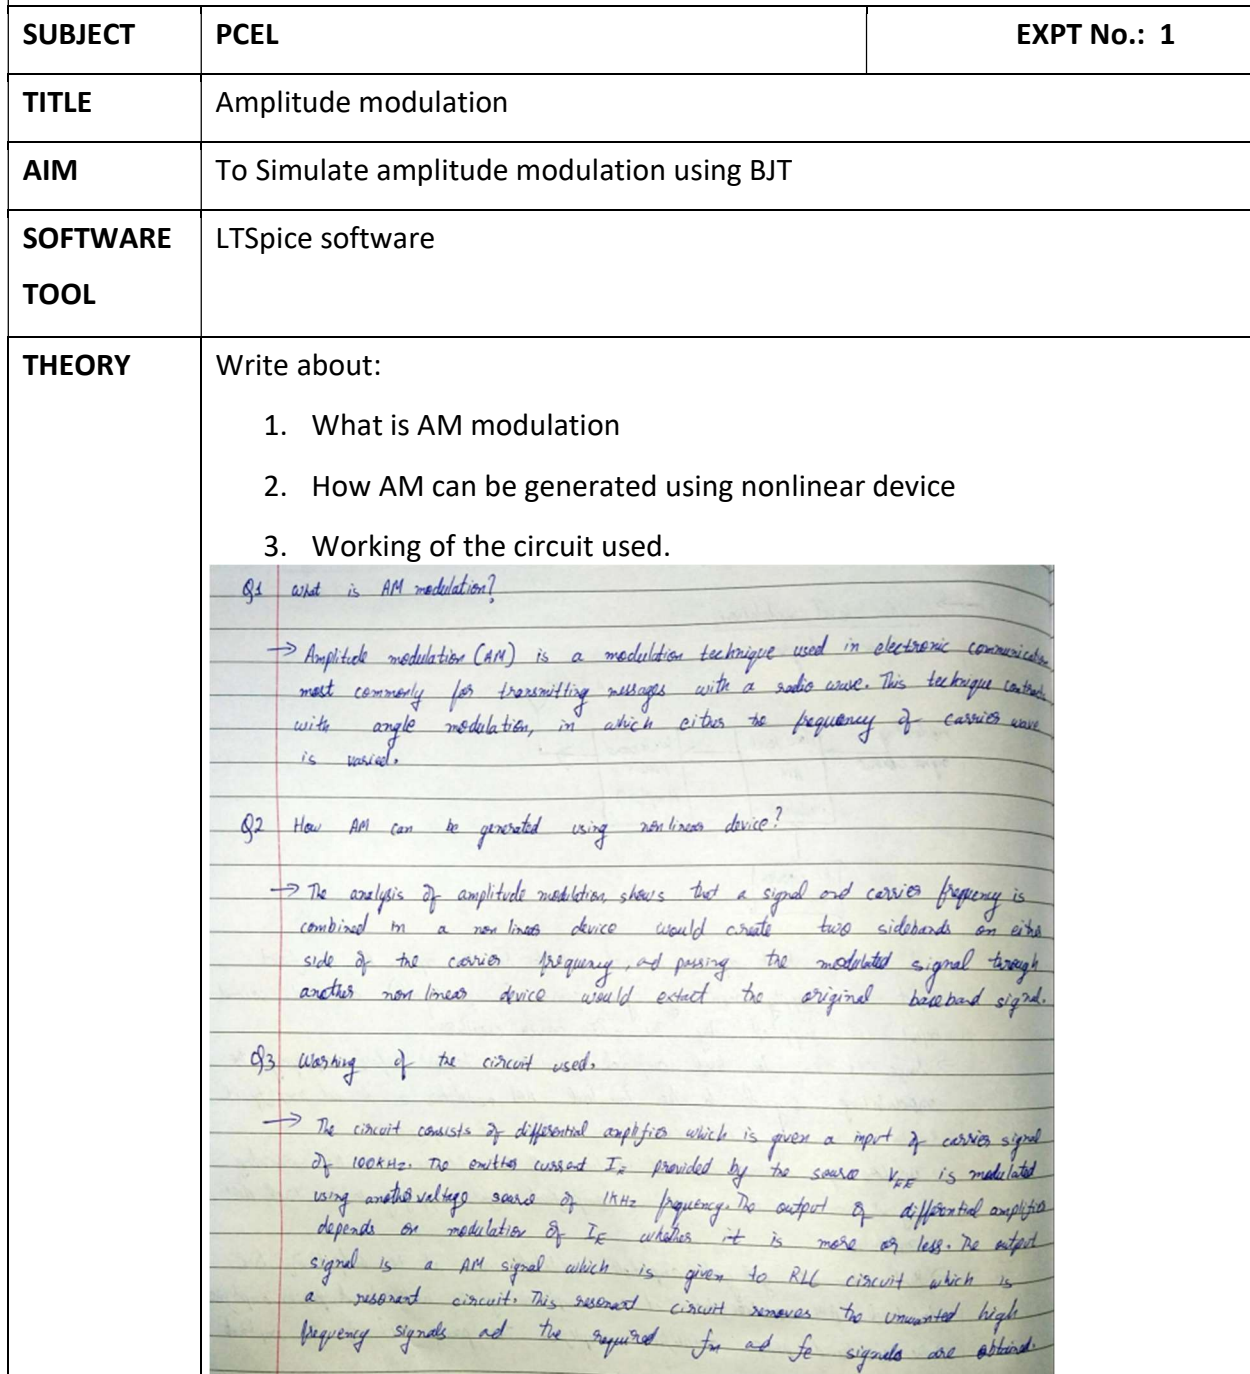 SUBJECT PCEL EXPT No.: 1
TITLE Amplitude modulation
AIM To Simulate amplitude modulation using BJT
SOFTWARE LTSpice software
TOOL
THEORY Write about:
1. What is AM modulation
2. How AM can be generated using nonlinear device
3. Working of the circuit used.
Q1 What is AM modulation?
→ Amplitude modulation (AM) is a modulation technique used in electronic communication
most commonly for transmitting messages with a radio wave. This technique
with angle modulation, in which either the frequency of carrier wave
is varied.
Q2 How AM can be generated using non linear device?
→ The analysis of amplitude modulation, shows that a signal and carrier frequency is
combined in a non linear device would create two sidebands on
side of the carrier frequency, ad passing the modulated signal through
another non linear device would extact the original baseband signal.
Q3 Working of the circuit used.
→ The circuit consists of differential amplifier which is given a input of carrier signal
of 100KHz. The emitter current IE provided by the source VEE is modulated
using another voltage source of 1KHz frequency. The output of differential amplifier
depends on modulation of IE whether it is more or less. The output
signal is a AM signal which is given to RLC circuit which is
a resonant circuit. This resonant circuit removes the unwanted high
frequency signals ad the required fm ad fc signals are obtained.